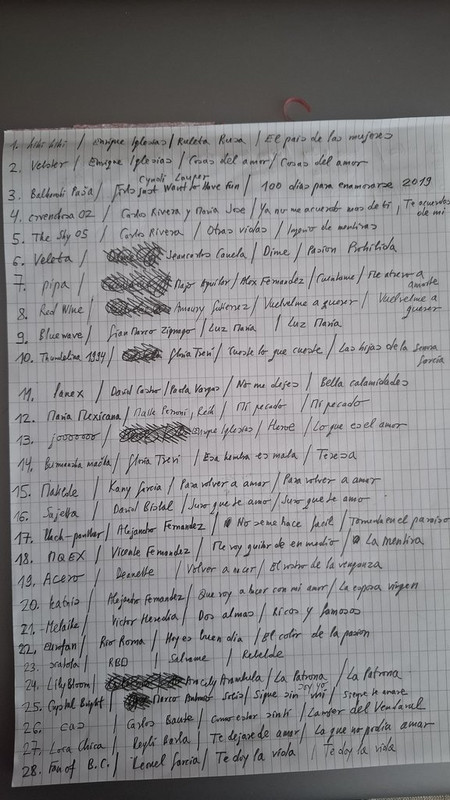 1. / Enrique Iglesias / Ruleta Rusa / El pais de las mujeres
2. Vebster / Enrique Iglesias / Cosas del amor / Cosas del amor
Cyndi Lauper
3. / Girls just Want to Have fun / 100 dias para enamorarse 2019
4. 02 / Carlos Rivera y Maria Jose / Ya no me acuerdo mas de ti, Te acuerdas de mi
5. The Sky 05 / Carlos Rivera / Otras vidas / Imperio de mentiras
6. Veleta / Jeancarlos Canela / Dime / Pasion Prohibida
7. pipa / Majo Aguilar / Alex Fernandez / Cuentame / Me atrevo a amarte
8. Red Wine / Amaury Gutierez / Vuelveme a querer / Vuelveme a querer
9. Bluewave / Gian Marco Zignago / Luz Maria / Luz Maria
10. Thumbelina 1994 / Gloria Trevi / Cueste lo que cueste / Las hijas de la senora Garcia
11. Panex / David Castro / Paola Vargas / No me dejes / Bella calamidades
12. Maria Mexicana / Maite Perroni, Reik / Mi pecado / Mi pecado
13. jooooooo / Enrique Iglesias / Heroe / Lo que es el amor
14. / Gloria Trevi / Esa hembra es mala / Teresa
15. Matilde / Kany Garcia / Para volver a amar / Para volver a amar
16. Sajetta / David Bisbal / Juro que te amo / Juro que te amo
17. black-panther / Alejandro Fernandez / No se me hace facil / Tormenta en el paraiso
18. MQEX / Vicente Fernandez / Me voy quitar de en medio / La mentira
19. Acero / Dannette / Volver a nacer / El rostro de la venganza
20. katniS / Alejandro Fernandez / Que voy a hacer con mi amor / La esposa virgen
21. / Victor Heredia / Dos almas / Ricos y famosos
22. / Rio Roma / Hoy es buen dia / El color de la pasion
23. / RBD / Salvame / Rebelde
24. LilyBloom / Aracely Arambula / La Patrona / La Patrona
25. Crystal Bright / Marco Antonio Solis / Sigue sin mi / Soy yo / Siempre te amare
26. / Carlos Baute / Como estar sinti / La mujer del Vendaval
27. Loca Chica / Reyli Barba / Te dejare de amar / La que no podia amar
28. Fan of B.C. / Lenel Garcia / Te doy la vida / Te doy la vida